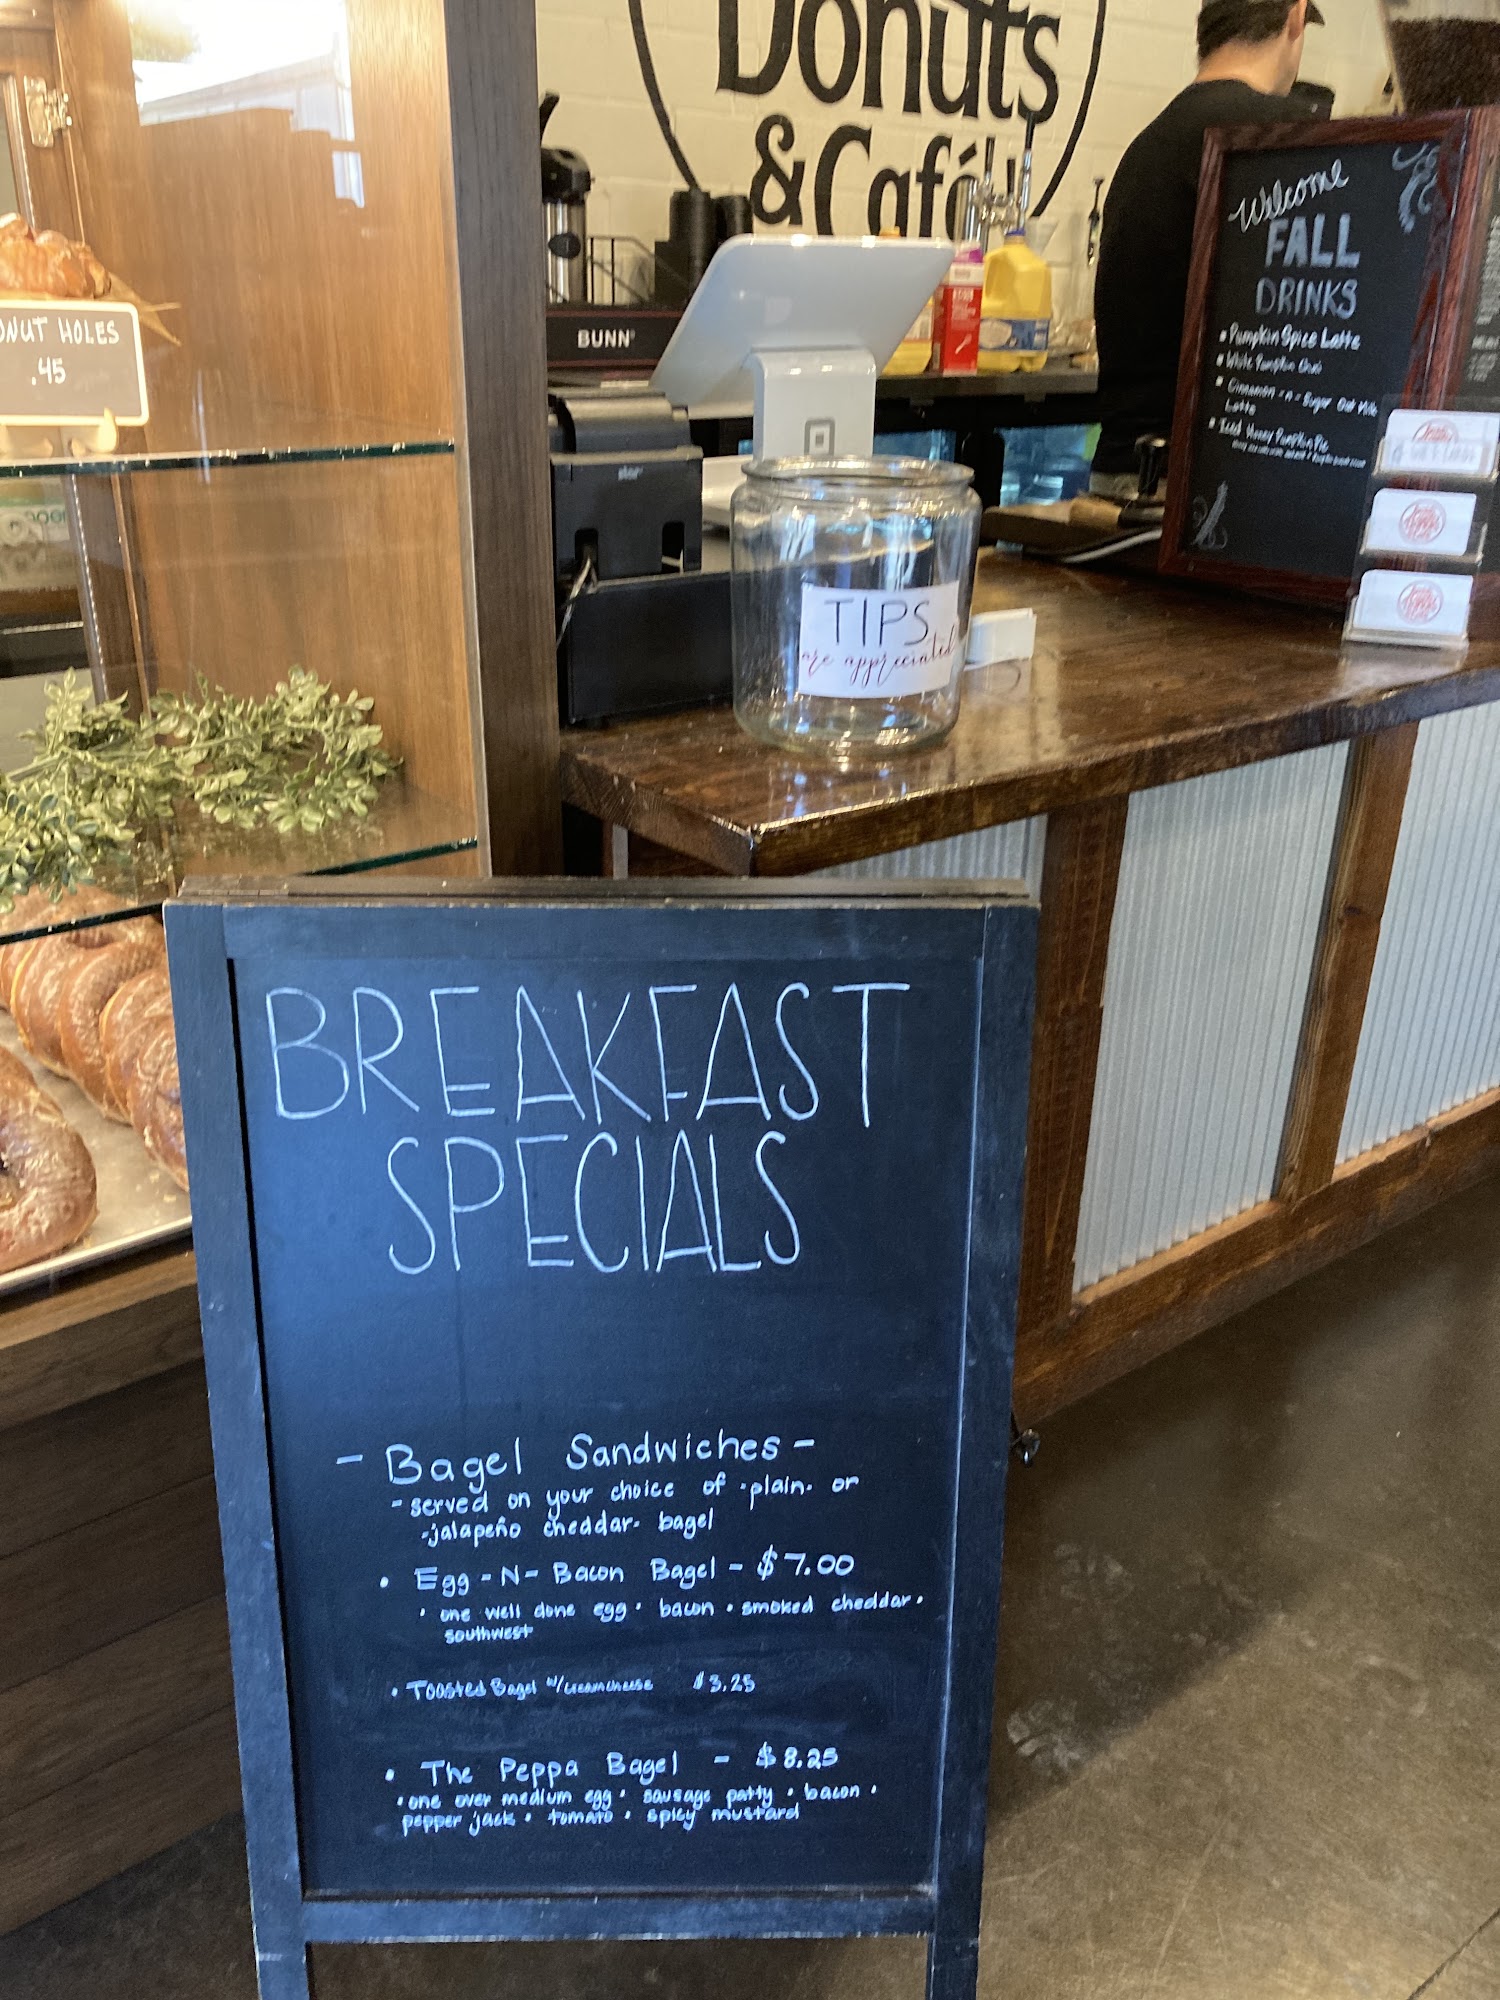 Donuts
& Café
BUNN
star
DONUT HOLES
.45
Welcome
FALL
DRINKS
• Pumpkin Spice Latte
• White Pumpkin Chai
• Cinnamon - n - Sugar Oat Milk
Latte
• Iced Honey Pumpkin Pie
TIPS
are appreciated
BREAKFAST
SPECIALS
- Bagel Sandwiches -
- served on your choice of -plain- or
-jalapeño cheddar- bagel
• Egg - N - Bacon Bagel - $7.00
• one well done egg • bacon • smoked cheddar •
southwest
• Toasted Bagel w/creamcheese $3.25
• The Peppa Bagel - $8.25
• one over medium egg • sausage patty • bacon •
pepper jack • tomato • spicy mustard